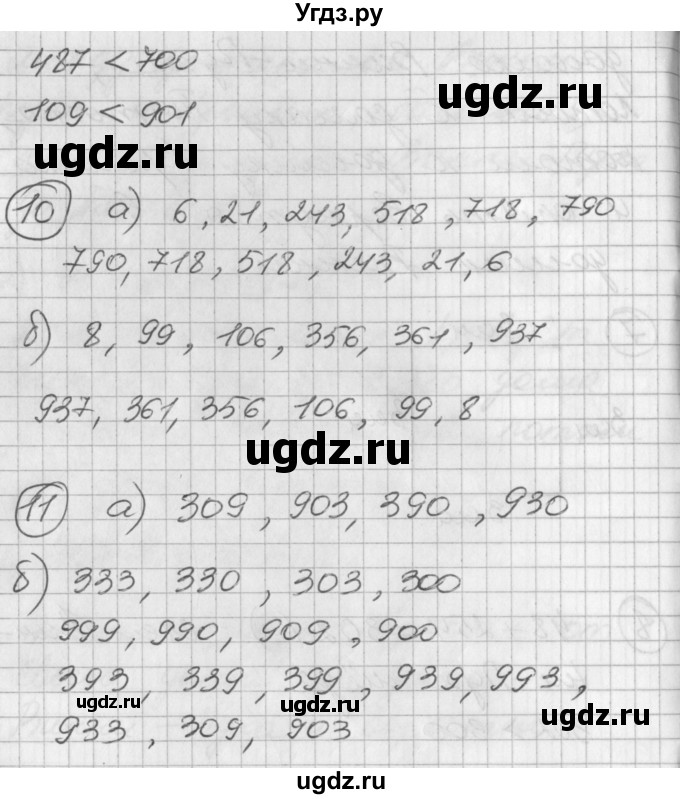 Угдз.ру
487 < 700
ugdz.ru
109 < 901
ugdz.ru
10 а) 6, 21, 243, 518, 718, 790
790, 718, 518, 243, 21, 6
б) 8, 99, 106, 356, 361, 937
937, 361, 356, 106, 99, 8
ugdz.ru
11 а) 309, 903, 390, 930
б) 333, 330, 303, 300
999, 990, 909, 900
393, 339, 399, 939, 993,
ugdz.ru ugdz.ru ugdz.ru
933, 309, 903
ugdz.ru